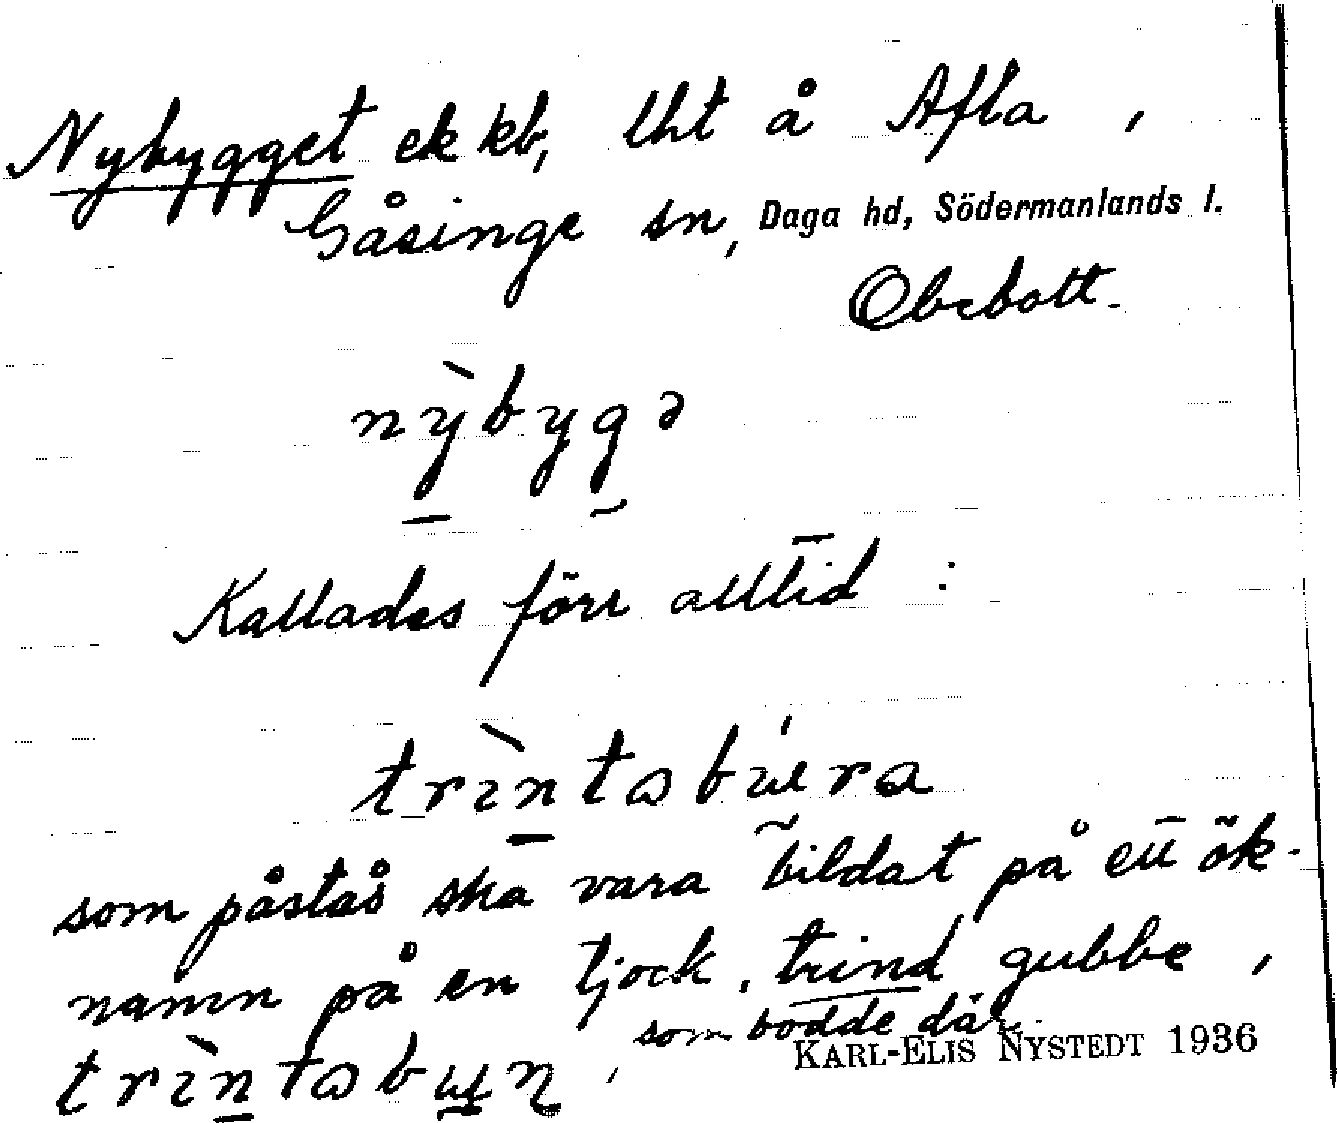 Nybygget ek kb, lht å Afla,
Gåsinge sn, Daga hd, Södermanlands l.
Obebott.
nỳbygə
Kallades förr alltid :
trìntabura
som påstås ska vara bildat på ett ök-
namn på en tjock, trind gubbe,
som bodde där.
KARL-ELIS NYSTEDT 1936